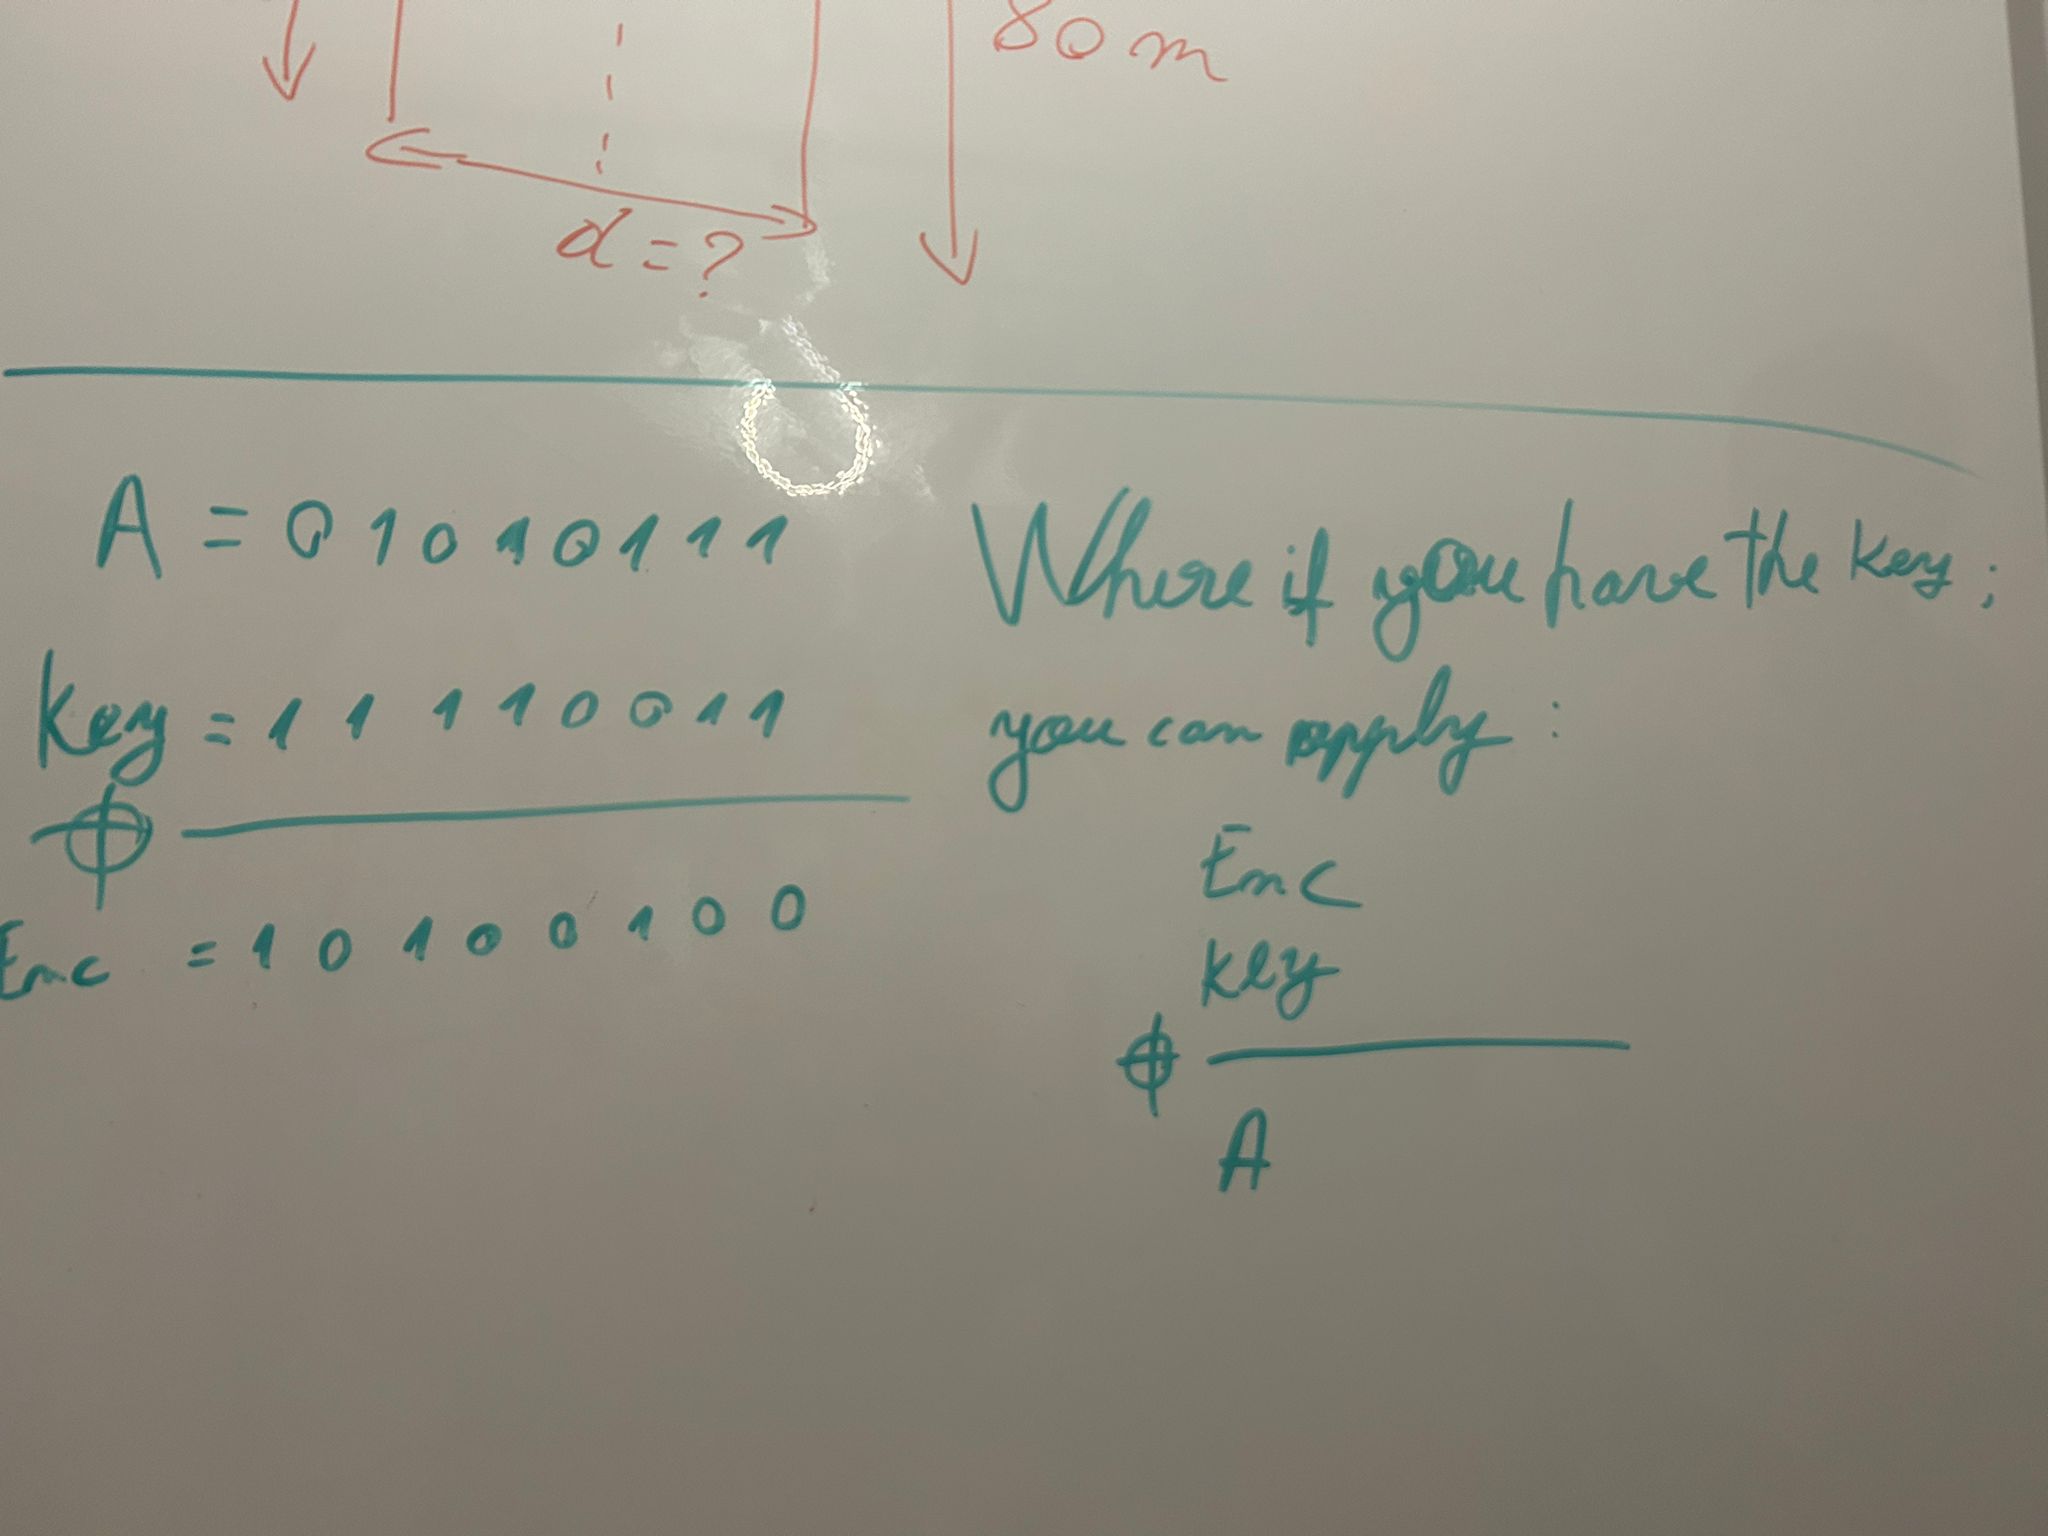 80 m
d = ?
A = 0 1 0 1 0 1 1 1
Key = 1 1 1 1 0 0 1 1
⊕
Enc = 1 0 1 0 0 1 0 0
Where if you have the key;
you can apply:
Enc
key
⊕
A